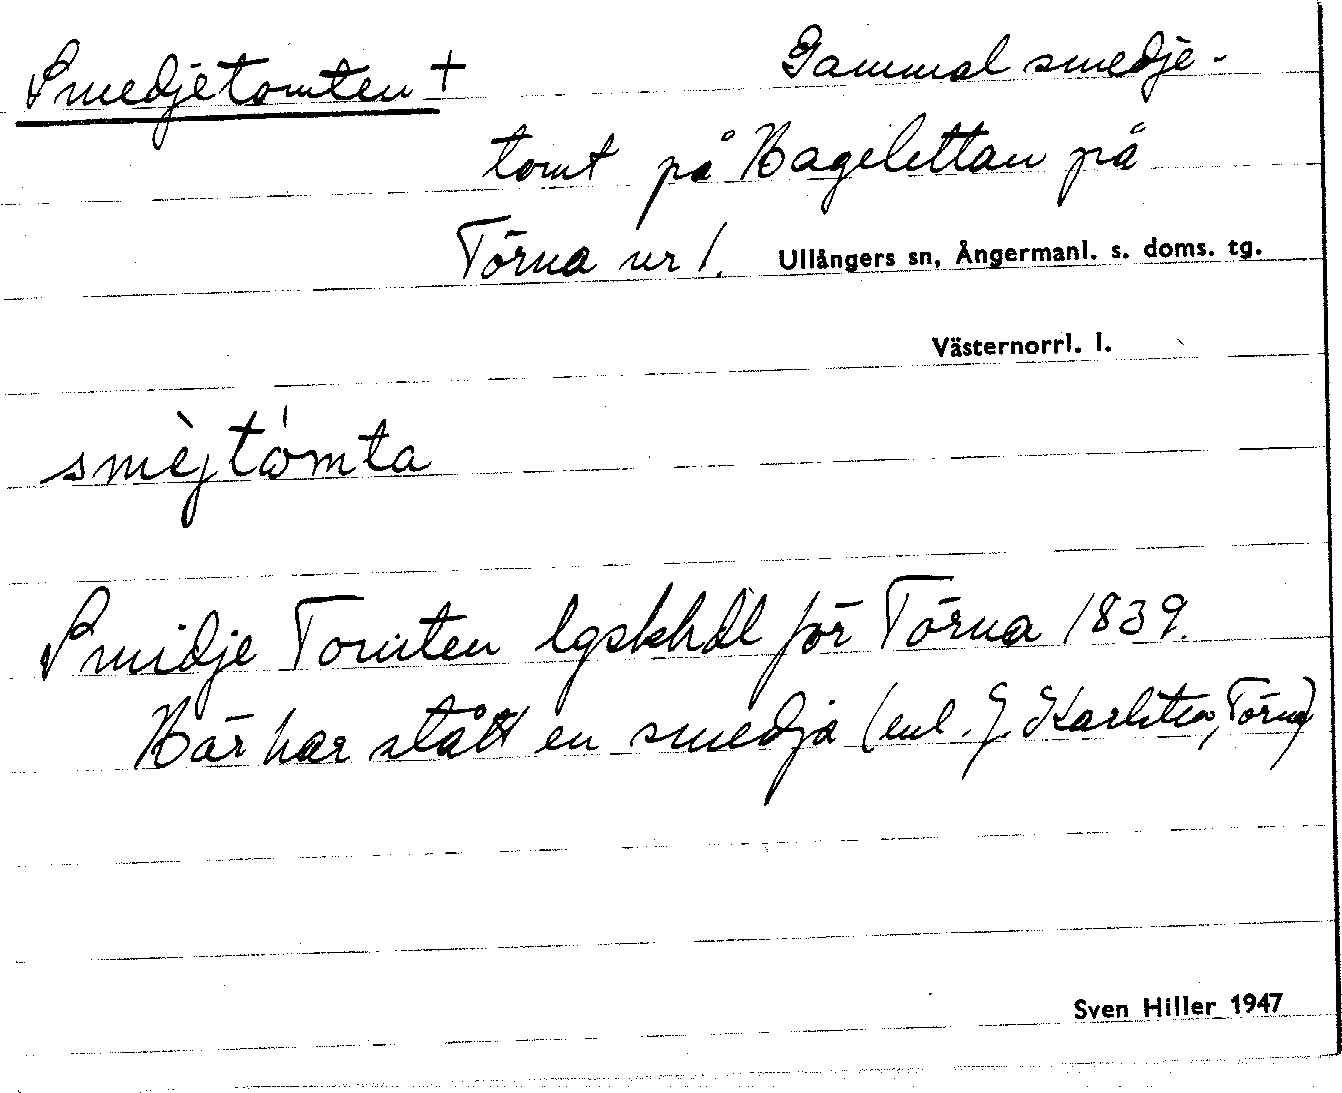 Smedjetomten + Gammal smedje-
tomt på Hagelettan på
Törna nr 1. Ullångers sn, Ångermanl. s. doms. tg.
Västernorrl. l.
smèjtòmta
Smidje Tomten lgskhdl för Törna 1839.
Här har stått en smedja (enl. J. Törna)
Sven Hiller 1947